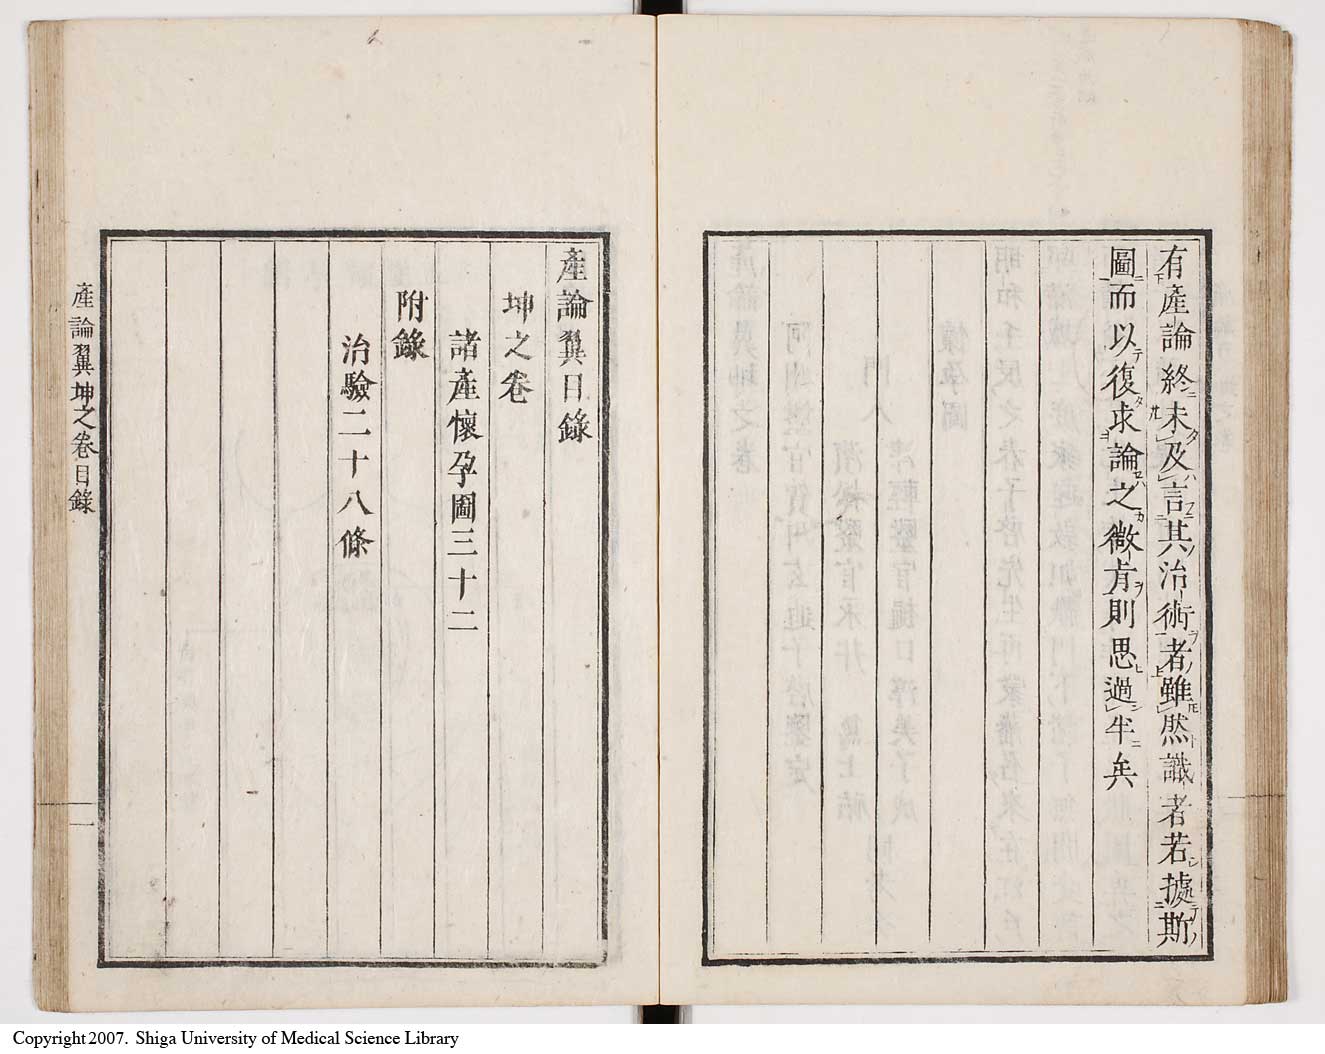 有產論終未及言其治術者雖然識者若據斯
圖而以復求論之微肯則思過半矣
產論翼目錄
坤之卷
諸產懷孕圖三十二
附錄
治驗二十八條
產論翼 坤之卷目錄
一
Copyright 2007. Shiga University of Medical Science Library